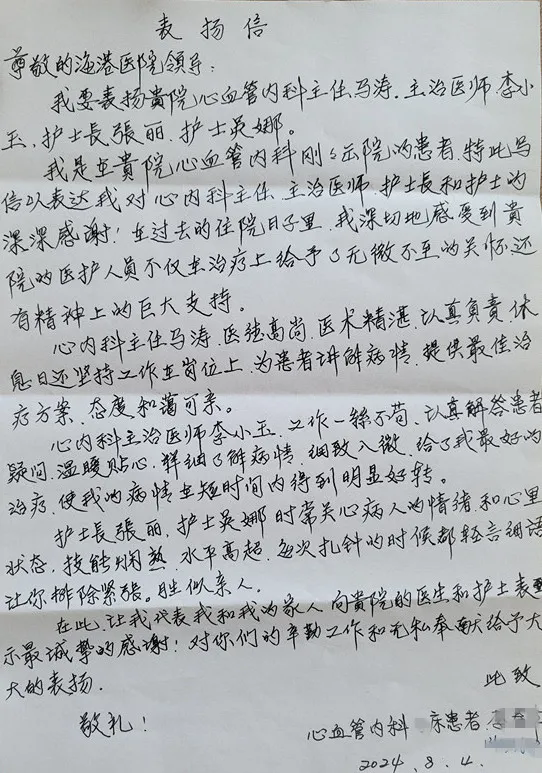 表扬信
尊敬的海港医院领导:
我要表扬貴院心血管内科主任马涛.主治医师.李小
玉、护士長張丽.护士吳娜。
我是在貴院心血管内科刚刚出院的患者.特此写
信以表达我对心内科主任.主治医师.护士長和护士的
深深感谢!在过去的住院日子里.我深切地感受到貴
院的医护人员不仅在治疗上给予了无微不至的关怀.还
有精神上的巨大支持。
心内科主任马涛.医德高尚.医术精湛.认真負责.休
息日还坚持工作在崗位上.为患者讲解病情.提供最佳治
疗方案.态度和藹可亲。
心内科主治医师李小玉.工作一絲不苟.认真解答患者
疑问.温暖贴心.詳细了解病情.细致入微.给了我最好的
治疗.使我的病情在短时间内得到明显好转。
护士長張丽.护士吳娜时常关心病人的情绪和心里
状态.技能娴熟.水平高超.每次扎针的时候都轻言细语
让你排除紧张。胜似亲人。
在此.让我代表我和我的家人向貴院的医生和护士表
示最诚挚的感谢!对你们的辛勤工作和无私奉献给予大
大的表扬.
此致
敬礼!
心血管内科 床患者李
2024.8.4.